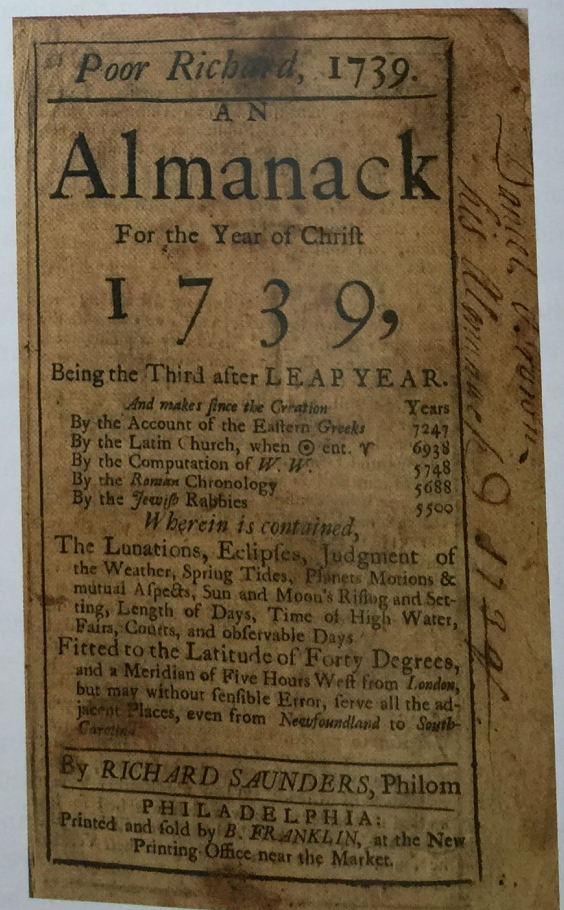 Poor Richard, 1739.
AN
Almanack
For the Year of Chriſt
1739,
Being the Third after LEAP YEAR.
And makes ſince the Creation Years
By the Account of the Eaſtern Greeks 7247
By the Latin Church, when ☉ ent. ♈ 6938
By the Computation of W. W. 5748
By the Roman Chronology 5688
By the Jewiſh Rabbies 5500
Wherein is contained,
The Lunations, Eclipſes, Judgment of
the Weather, Spring Tides, Planets Motions &
mutual Aſpects, Sun and Moon's Riſing and Set-
ting, Length of Days, Time of High Water,
Fairs, Courts, and obſervable Days
Fitted to the Latitude of Forty Degrees,
and a Meridian of Five Hours Weſt from London,
but may without ſenſible Error, ſerve all the ad-
jacent Places, even from Newfoundland to South-
Carolina
By RICHARD SAUNDERS, Philom
PHILADELPHIA:
Printed and ſold by B. FRANKLIN, at the New
Printing-Office near the Market.
Daniel
his Almanack